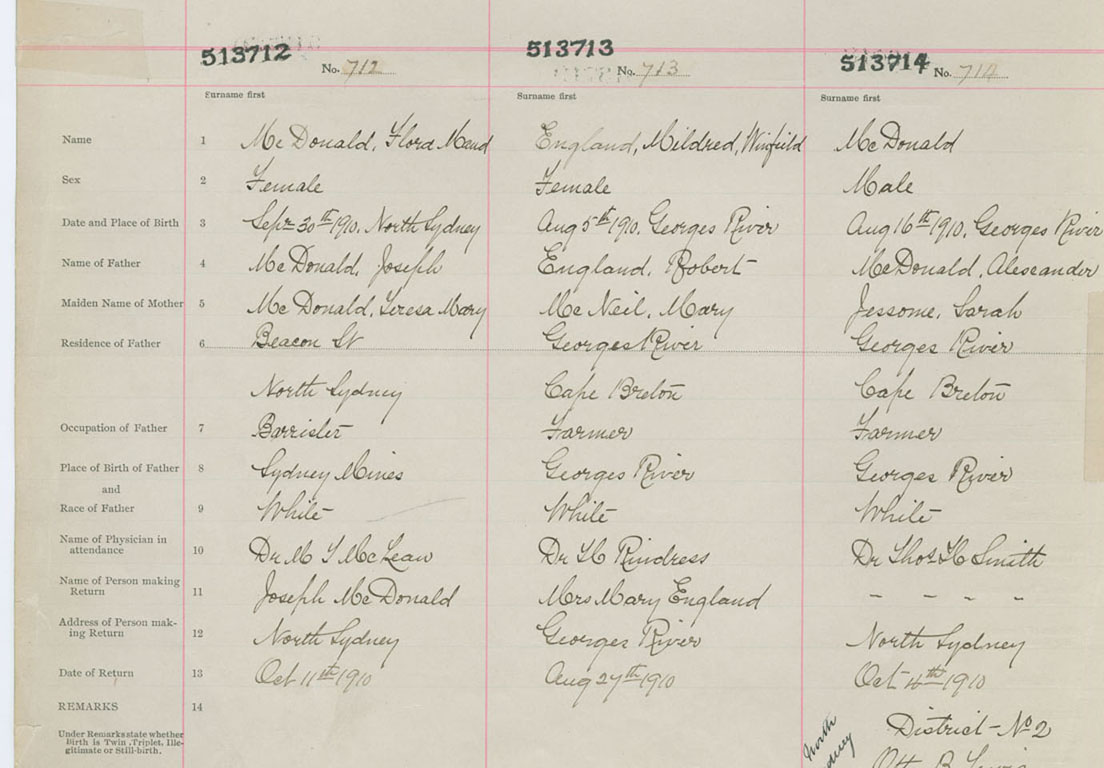 513712 513713 513714
No. 712 No. 713 No. 714
Surname first Surname first Surname first
Name 1 McDonald, Flora Maud England, Mildred, Winfield McDonald
Sex 2 Female Female Male
Date and Place of Birth 3 Sept 30th 1910, North Sydney Aug 5th 1910, Georges River Aug 16th 1910, Georges River
Name of Father 4 McDonald, Joseph England, Robert McDonald, Alexander
Maiden Name of Mother 5 McDonald, Teresa Mary McNeil, Mary Jessome, Sarah
Residence of Father 6 Beacon St Georges River Georges River
North Sydney Cape Breton Cape Breton
Occupation of Father 7 Barrister Farmer Farmer
Place of Birth of Father 8 Sydney Mines Georges River Georges River
and
Race of Father 9 White White White
Name of Physician in
attendance 10 Dr M McLean Dr H Rindress Dr Thos H Smith
Name of Person making
Return 11 Joseph McDonald Mrs Mary England - - - -
Address of Person mak-
ing Return 12 North Sydney Georges River North Sydney
Date of Return 13 Oct 11th 1910 Aug 27th 1910 Oct 4th 1910
REMARKS 14
District - No 2
North
Under Remarks state whether
Birth is Twin, Triplet, Ille-
gitimate or Still-birth.